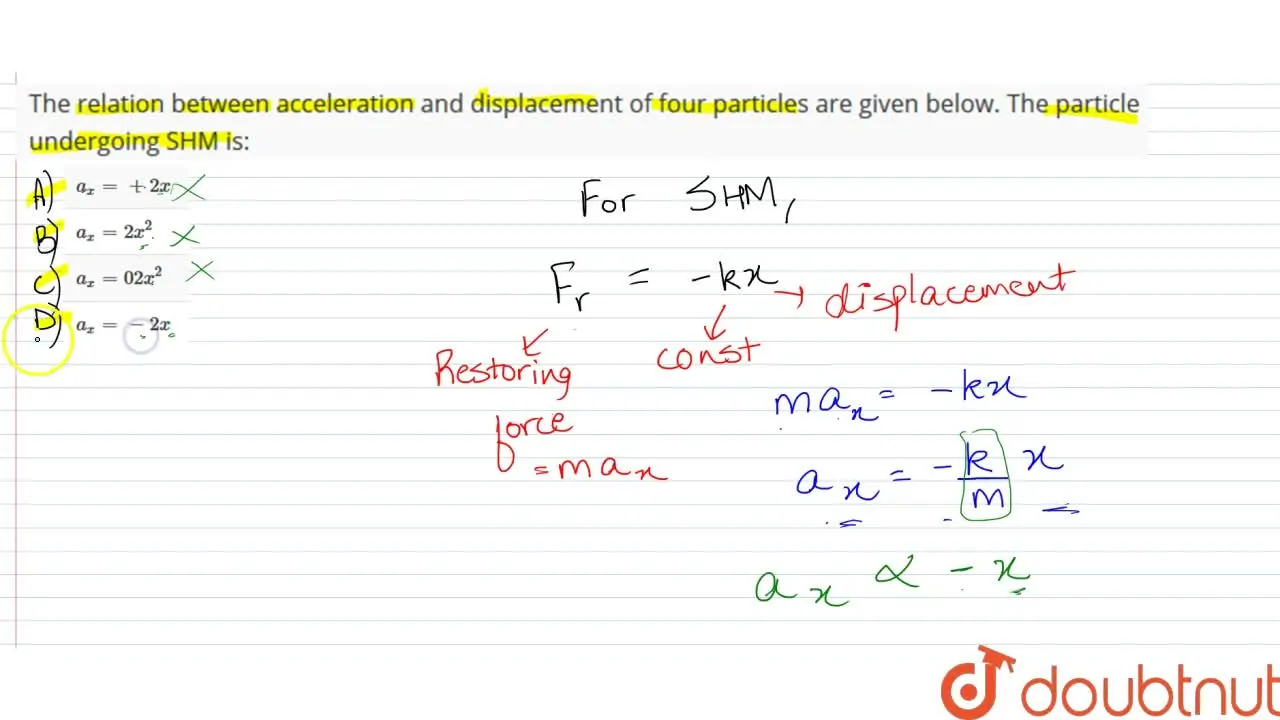 The relation between acceleration and displacement of four particles are given below. The particle
undergoing SHM is:
A) aₓ = +2x ×
B) aₓ = 2x² ×
C) aₓ = 02x² ×
D) aₓ = − 2x
For SHM,
Fr = -kx → displacement
Restoring
force
= maₓ
const
maₓ = -kx
aₓ = -k/m x
aₓ ∝ -x
doubtnut